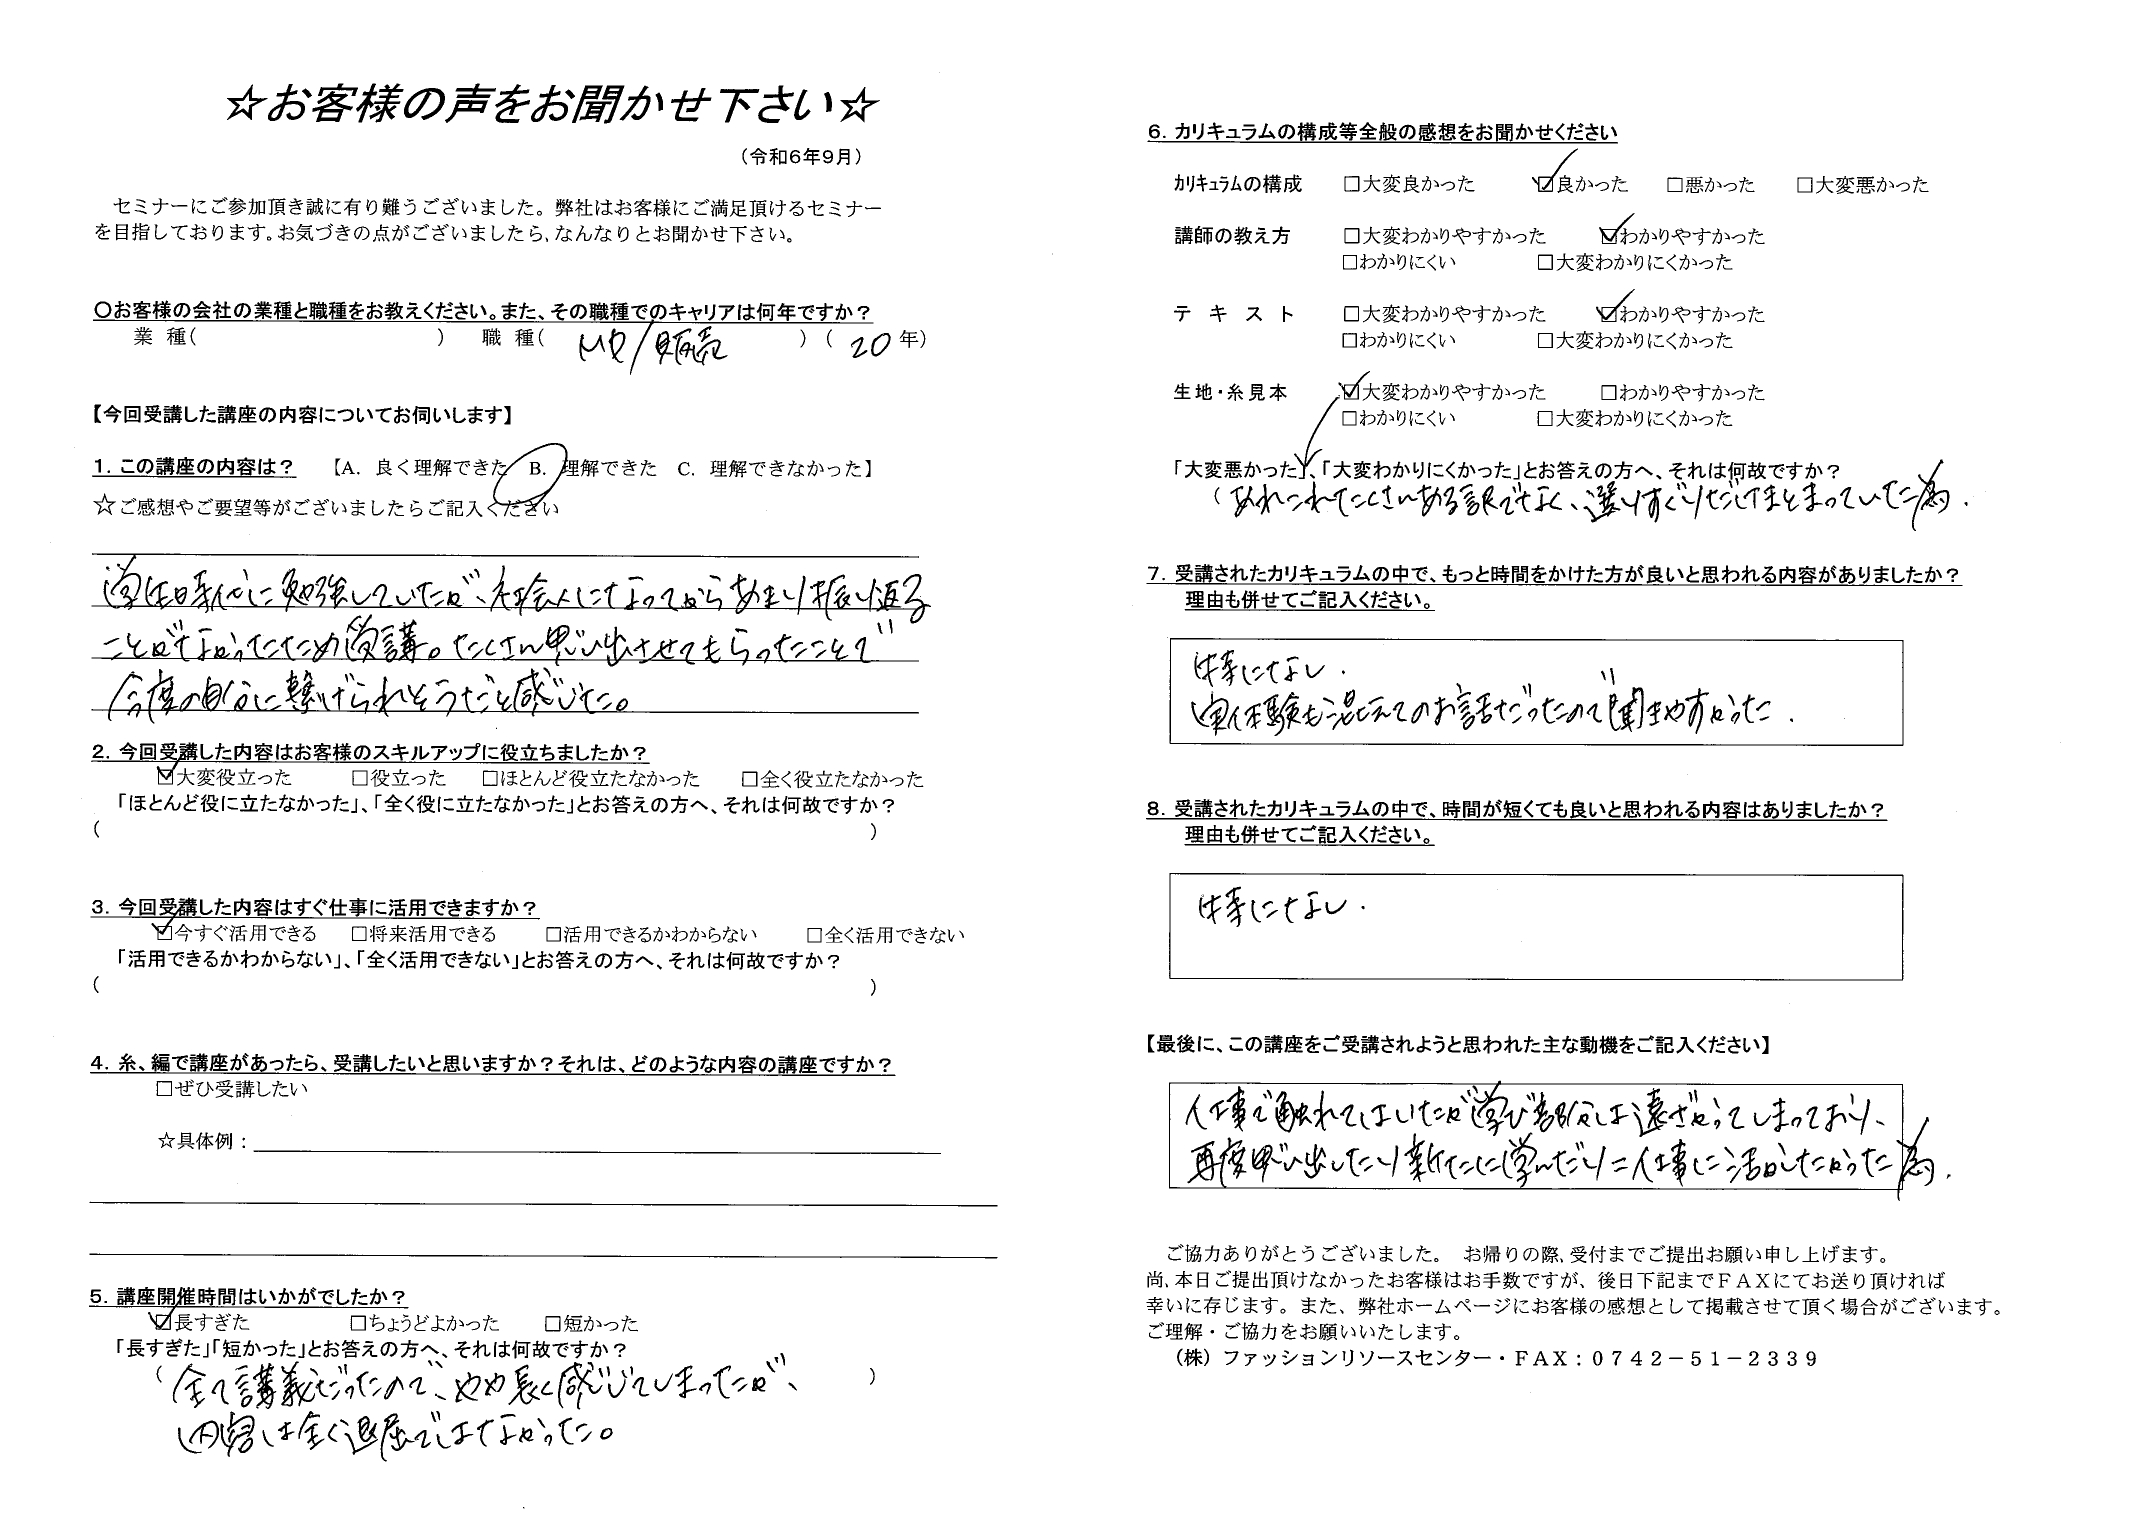 ☆お客様の声をお聞かせ下さい☆
（令和6年9月）
セミナーにご参加頂き誠に有り難うございました。弊社はお客様にご満足頂けるセミナー
を目指しております。お気づきの点がございましたら、なんなりとお聞かせ下さい。
〇お客様の会社の業種と職種をお教えください。また、その職種でのキャリアは何年ですか？
業 種( ) 職 種( MD/販売 ) ( 20 年)
【今回受講した講座の内容についてお伺いします】
1. この講座の内容は？ 【A. 良く理解できた B. 理解できた C. 理解できなかった】
☆ご感想やご要望等がございましたらご記入ください
学生時代に勉強していたが、社会人になってからあまり振り返る
ことがなかったため受講。たくさん思い出させてもらったことで
今度の自分に繋げられそうだと感じた。
2. 今回受講した内容はお客様のスキルアップに役立ちましたか？
☑大変役立った □役立った □ほとんど役立たなかった □全く役立たなかった
「ほとんど役に立たなかった」、「全く役に立たなかった」とお答えの方へ、それは何故ですか？
( )
3. 今回受講した内容はすぐ仕事に活用できますか？
☑今すぐ活用できる □将来活用できる □活用できるかわからない □全く活用できない
「活用できるかわからない」、「全く活用できない」とお答えの方へ、それは何故ですか？
( )
4. 糸、編で講座があったら、受講したいと思いますか？それは、どのような内容の講座ですか？
□ぜひ受講したい
☆具体例：
5. 講座開催時間はいかがでしたか？
☑長すぎた □ちょうどよかった □短かった
「長すぎた」「短かった」とお答えの方へ、それは何故ですか？
( 全て講義だったので、やや長く感じてしまったが、 )
内容は全く退屈ではなかった。
6. カリキュラムの構成等全般の感想をお聞かせください
カリキュラムの構成 □大変良かった ☑良かった □悪かった □大変悪かった
講師の教え方 □大変わかりやすかった ☑わかりやすかった
□わかりにくい □大変わかりにくかった
テ キ ス ト □大変わかりやすかった ☑わかりやすかった
□わかりにくい □大変わかりにくかった
生地・糸見本 ☑大変わかりやすかった □わかりやすかった
□わかりにくい □大変わかりにくかった
「大変悪かった」、「大変わかりにくかった」とお答えの方へ、それは何故ですか？
( あれこれたくさんある訳でなく、選りすぐりだけまとまっていた為.
7. 受講されたカリキュラムの中で、もっと時間をかけた方が良いと思われる内容がありましたか？
理由も併せてご記入ください。
特になし.
実体験も混えてのお話だったので聞きやすかった.
8. 受講されたカリキュラムの中で、時間が短くても良いと思われる内容はありましたか？
理由も併せてご記入ください。
特になし.
【最後に、この講座をご受講されようと思われた主な動機をご記入ください】
仕事で触れてはいたが学び部分は遠ざかってしまっており、
再度思い出したり新たに学んだりと仕事に活かしたかった為.
ご協力ありがとうございました。 お帰りの際、受付までご提出お願い申し上げます。
尚、本日ご提出頂けなかったお客様はお手数ですが、後日下記までＦＡＸにてお送り頂ければ
幸いに存じます。また、弊社ホームページにお客様の感想として掲載させて頂く場合がございます。
ご理解・ご協力をお願いいたします。
（株）ファッションリソースセンター・ＦＡＸ：０７４２－５１－２３３９